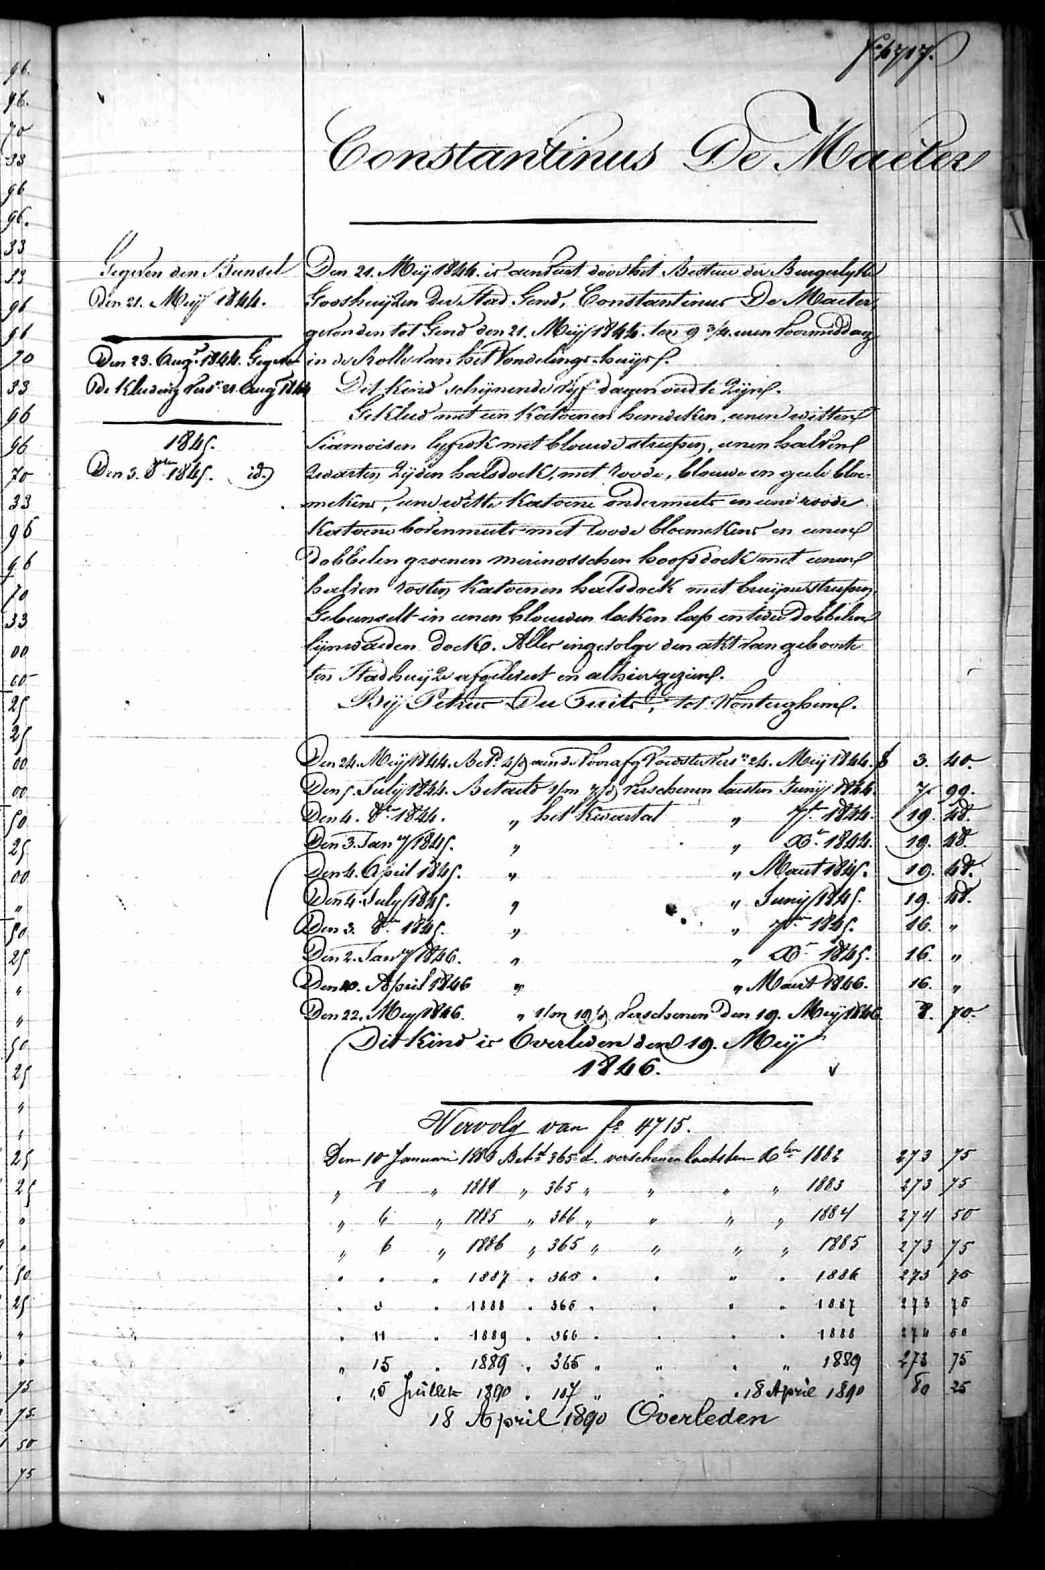 fo 4717.
Constantinus De Maeter
Gegeven den Bunsel
den 21. Meij 1844.
Den 23. Augt. 1844. Gegeven
de Kleeding vers. 21. Augt. 1844
1845.
Den 3. 8ber 1845. id.
Den 21. Meij 1844. is aenveird door het Bestuur der Burgerlijke
Godshuijzen der Stad Gend, Constantinus De Maeter,
gevonden tot Gend den 21. Meij 1844. ten 9 3/4. uren voormiddag
in de Rolle van het Vondelings-huijs.
Dit Kind schijnende vijf dagen oud te zijn.
Gekleed met een Katoenen hemdeken, eenen witten
Siamoisen lijfrok met blauwe streepen, eenen halven
zwarten zijden halsdoek, met roode, blouwe en geele bloe-
mekens, eene witte Katoene ondermuts en eene roode
Katoene bovenmuts met roode bloemekens en eenen
dobbelen groenen merinosschen hoofddoek met eenen
halven rosten Katoenen halsdoek met bruijne streepen,
Gebunselt in eenen blouwen laken lap en twee dobbelen
lijnwaeden doek. Alles ingevolge den akt van geboorte
ten Stadhuijze afgelevert en alhier gezien.
Bij Petrus De Fruits, tot Wonterghem.
Den 24. Meij 1844. Bet. vers. 24. Meij 1844. f 3. 40.
Den 5. Julij 1844. Betaelt verschenen laesten Junij 1844. 7. 99.
Den 4. 8br 1844. " het Kwartal " 7br 1844. 19. 48.
Den 3. Jany 1845. " " Xbr 1844. 19. 48.
Den 4. April 1845. " " Maert 1845. 19. 48.
Den 4. July 1845. " " Junij 1845. 19. 48.
Den 3. 8br 1845. " " 7br 1845. 16. "
Den 2. Jany 1846. " " Xbr 1845. 16. "
Den 10. April 1846 " " Maert 1846. 16. "
Den 22. Mey 1846. " verschenen den 19. Meij 1846 8. 70.
Dit Kind is Overleden den 19. Meij
1846.
Vervolg van fo 4715.
Den 10 Januari 1883 Bet. 365 d. verschenen laatsten Xber 1882 273 75
" 7 " 1884 " 365 " " " " 1883 273 75
" 6 " 1885 " 366 " " " " 1884 274 50
" 6 " 1886 " 365 " " " " 1885 273 75
" " " 1887 " 365 " " " " 1886 273 75
" 5 " 1888 " 365 " " " " 1887 273 75
" 11 " 1889 " 366 " " " " 1888 274 50
" 15 " 1889 " 365 " " " " 1889 273 75
" 15 Juillet 1890 " 107 " " " 18 April 1890 80 25
18 April 1890 Overleden